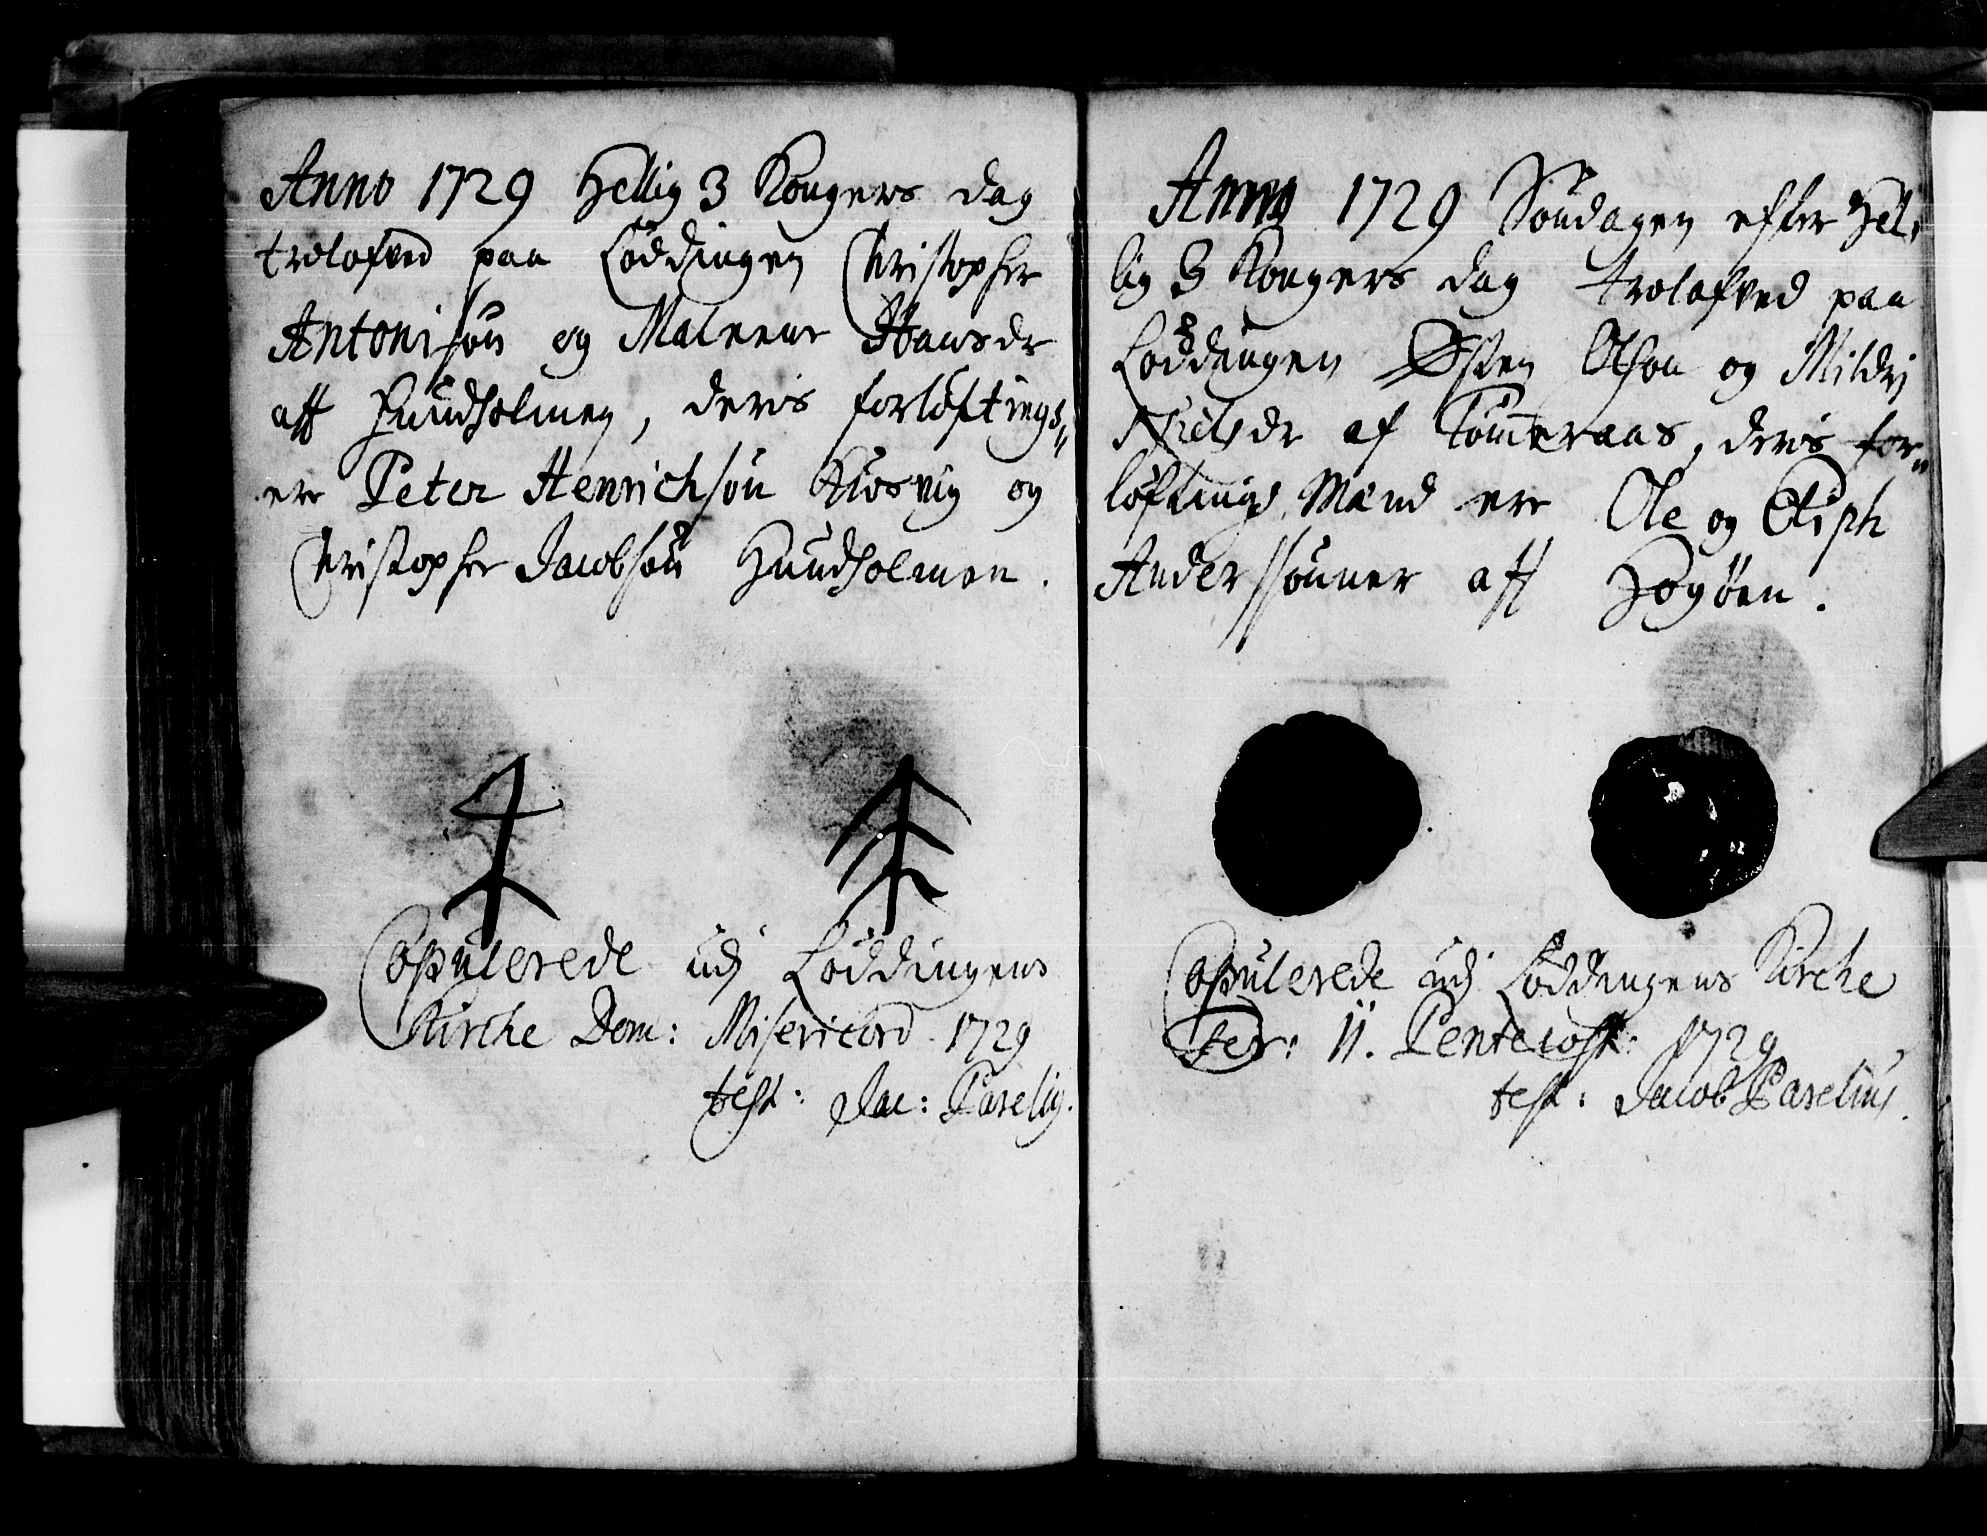 Anno 1729 Hellig 3 Kongers dag
trolofved paa Løddingen Christopher
Antonisøn og Maleene Hansdr
aff Hundholmen, deris forløftings„
ere Peter Henrichsøn Kiøsvig og
Christopher Jacobsøn Hundholmen.
Copulerede udj Løddingens
Kirche Dom: Misericord. 1729
test: Jac: Parelig.
Anno 1729 Søndagen efter Hel„
lig 3 Kongers dag trolofved paa
Løddingen Østen Olson og Mildrj
Nielsdr af Tømmeraas, deris for„
løftings Mænd ere Ole og Eliph
Anderssønner aff Hogøen.
Copulerede udj Løddingens Kirche
Fer: II. Pentecost: 1729
test: Jacob Parelius.